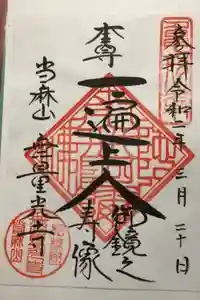 奉拝 令和二年三月二十日
本尊
一遍上人
御鏡之
寿像
当麻山
無量光寺